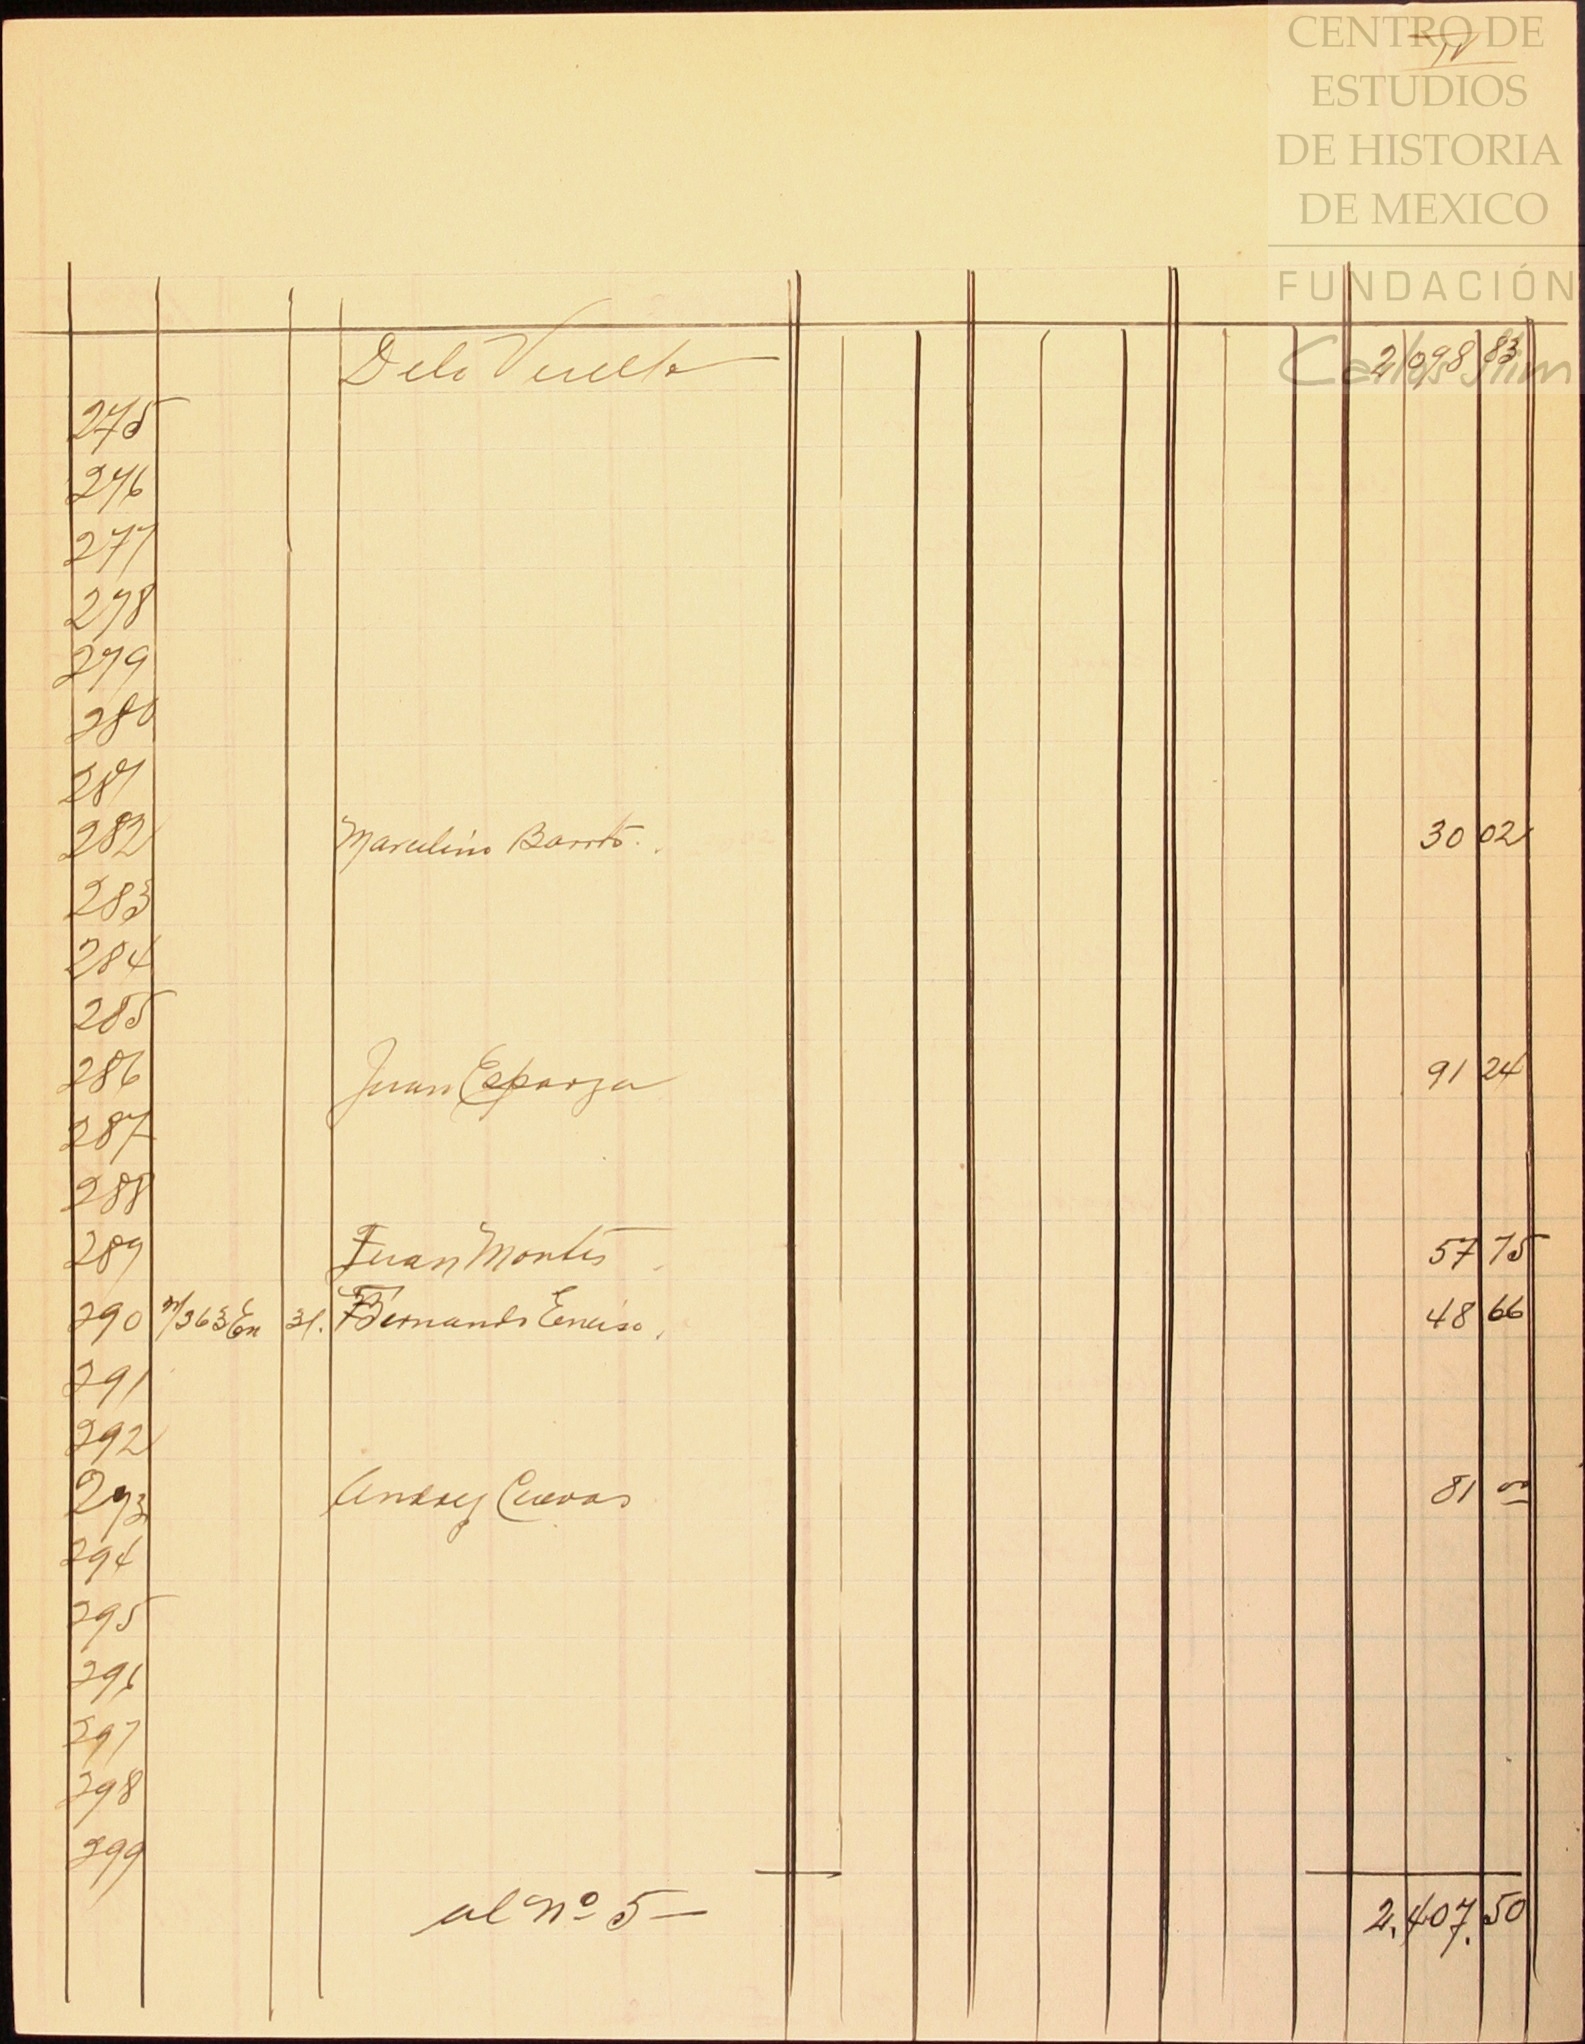 CENTRO DE
ESTUDIOS
DE HISTORIA
DE MEXICO
FUNDACIÓN
Carlos Slim
Dela Vuelta 2,098 83
275
276
277
278
279
280
281
282 Marcelino Barrto. 30 02
283
284
285
286 Juan Esparza 91 24
287
288
289 Juan Montes 57 75
290 363 En 31. Bernardo Enciso. 48 66
291
292
293 Andres Cuevas 81 00
294
295
296
297
298
299
al nº 5 2,407.50